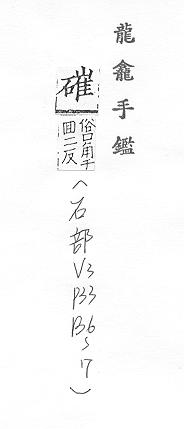 龍龕手鑑
磪
俗口角子
回二反
(石部
V3
P33
B6
~
17)